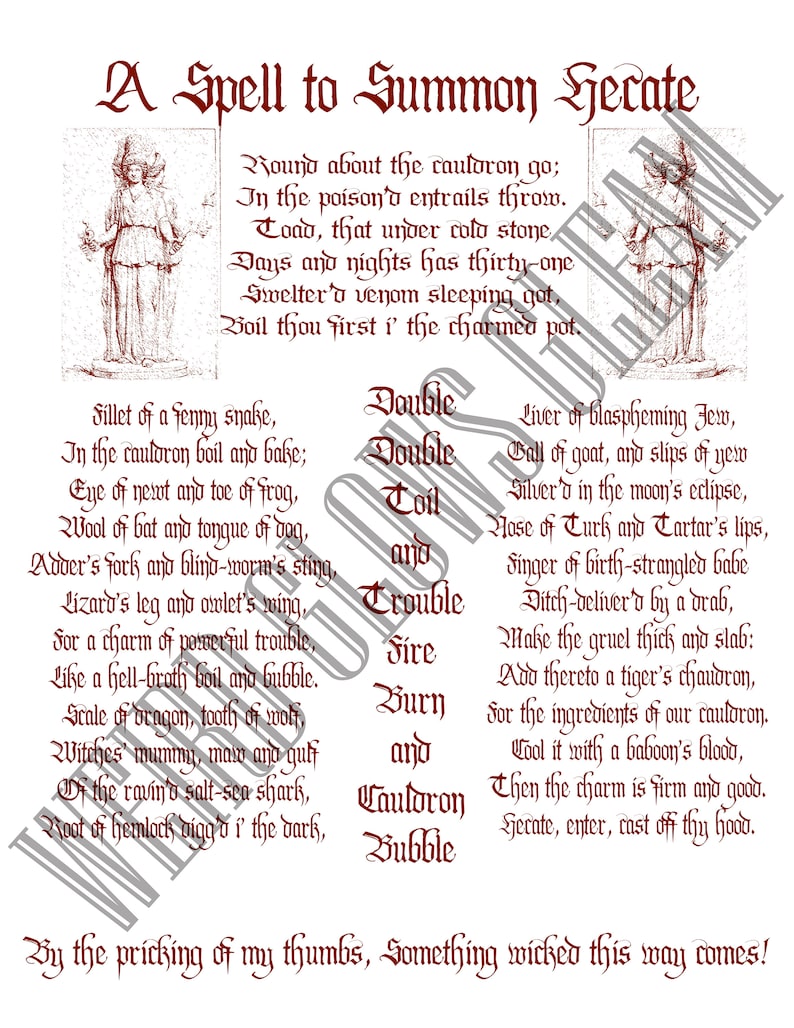 A Spell to Summon Hecate
Round about the cauldron go;
In the poison'd entrails throw.
Toad, that under cold stone
Days and nights has thirty-one
Swelter'd venom sleeping got,
Boil thou first i' the charmed pot.
Fillet of a fenny snake,
In the cauldron boil and bake;
Eye of newt and toe of frog,
Wool of bat and tongue of dog,
Adder's fork and blind-worm's sting,
Lizard's leg and owlet's wing,
For a charm of powerful trouble,
Like a hell-broth boil and bubble.
Scale of dragon, tooth of wolf,
Witches' mummy, maw and gulf
Of the ravin'd salt-sea shark,
Root of hemlock digg'd i' the dark,
Double
Double
Toil
and
Trouble
Fire
Burn
and
Cauldron
Bubble
Liver of blaspheming Jew,
Gall of goat, and slips of yew
Silver'd in the moon's eclipse,
Nose of Turk and Tartar's lips,
Finger of birth-strangled babe
Ditch-deliver'd by a drab,
Make the gruel thick and slab:
Add thereto a tiger's chaudron,
For the ingredients of our cauldron.
Cool it with a baboon's blood,
Then the charm is firm and good.
Hecate, enter, cast off thy hood.
By the pricking of my thumbs, Something wicked this way comes!
WEIRD GLOWS GLEAM